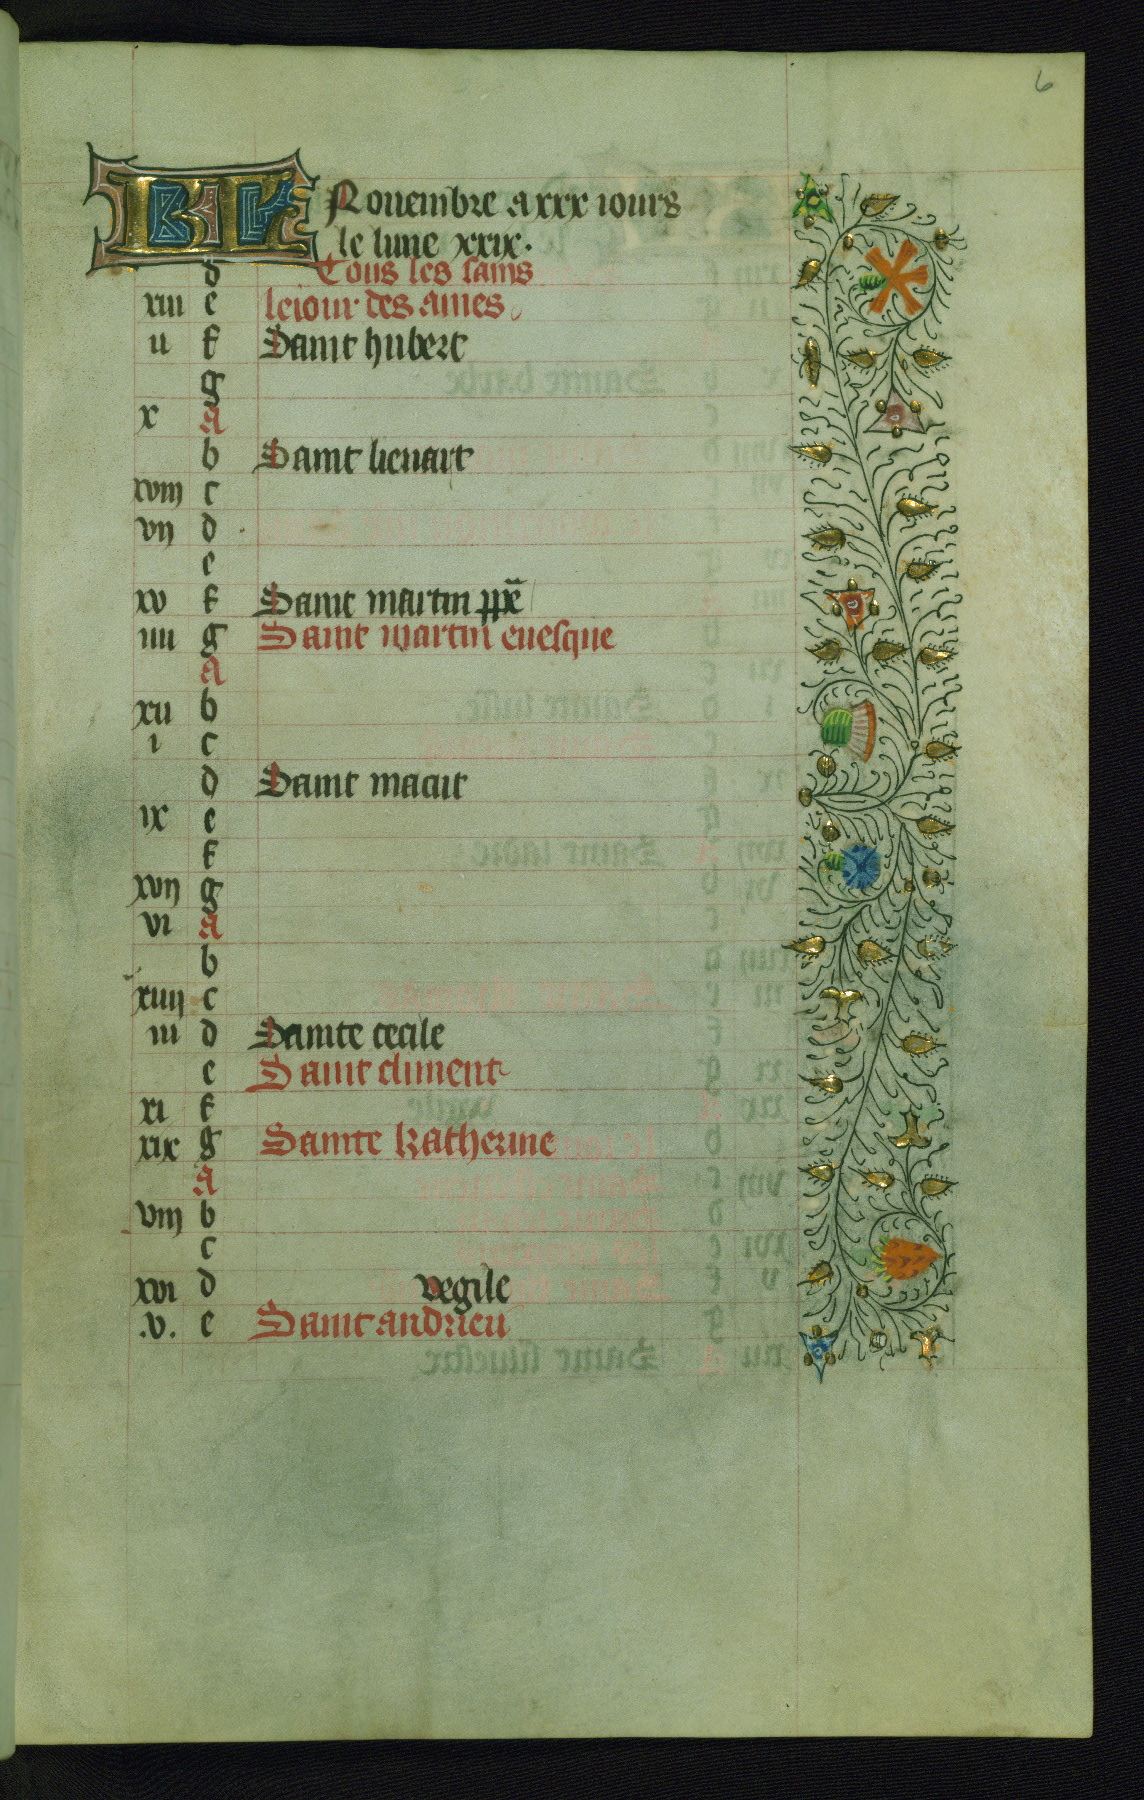 6
KL Nouembre a xxx iours
le lune xxix.
d Tous les sains
xiii e le iour des ames
ii f Saint hubert
g
x a
b Saint lienart
xviij c
vij d
e
xv f Saint martin pp̄e
iiii g Saint martin euesque
a
xii b
i c
d Saint maciit
ix e
f
xvij g
vi a
b
xiiij c
iii d Sainte cecile
e Saint climent
xi f
xix g Sainte katherine
a
viij b
c
xvi d vegile
.v. e Saint andrieu